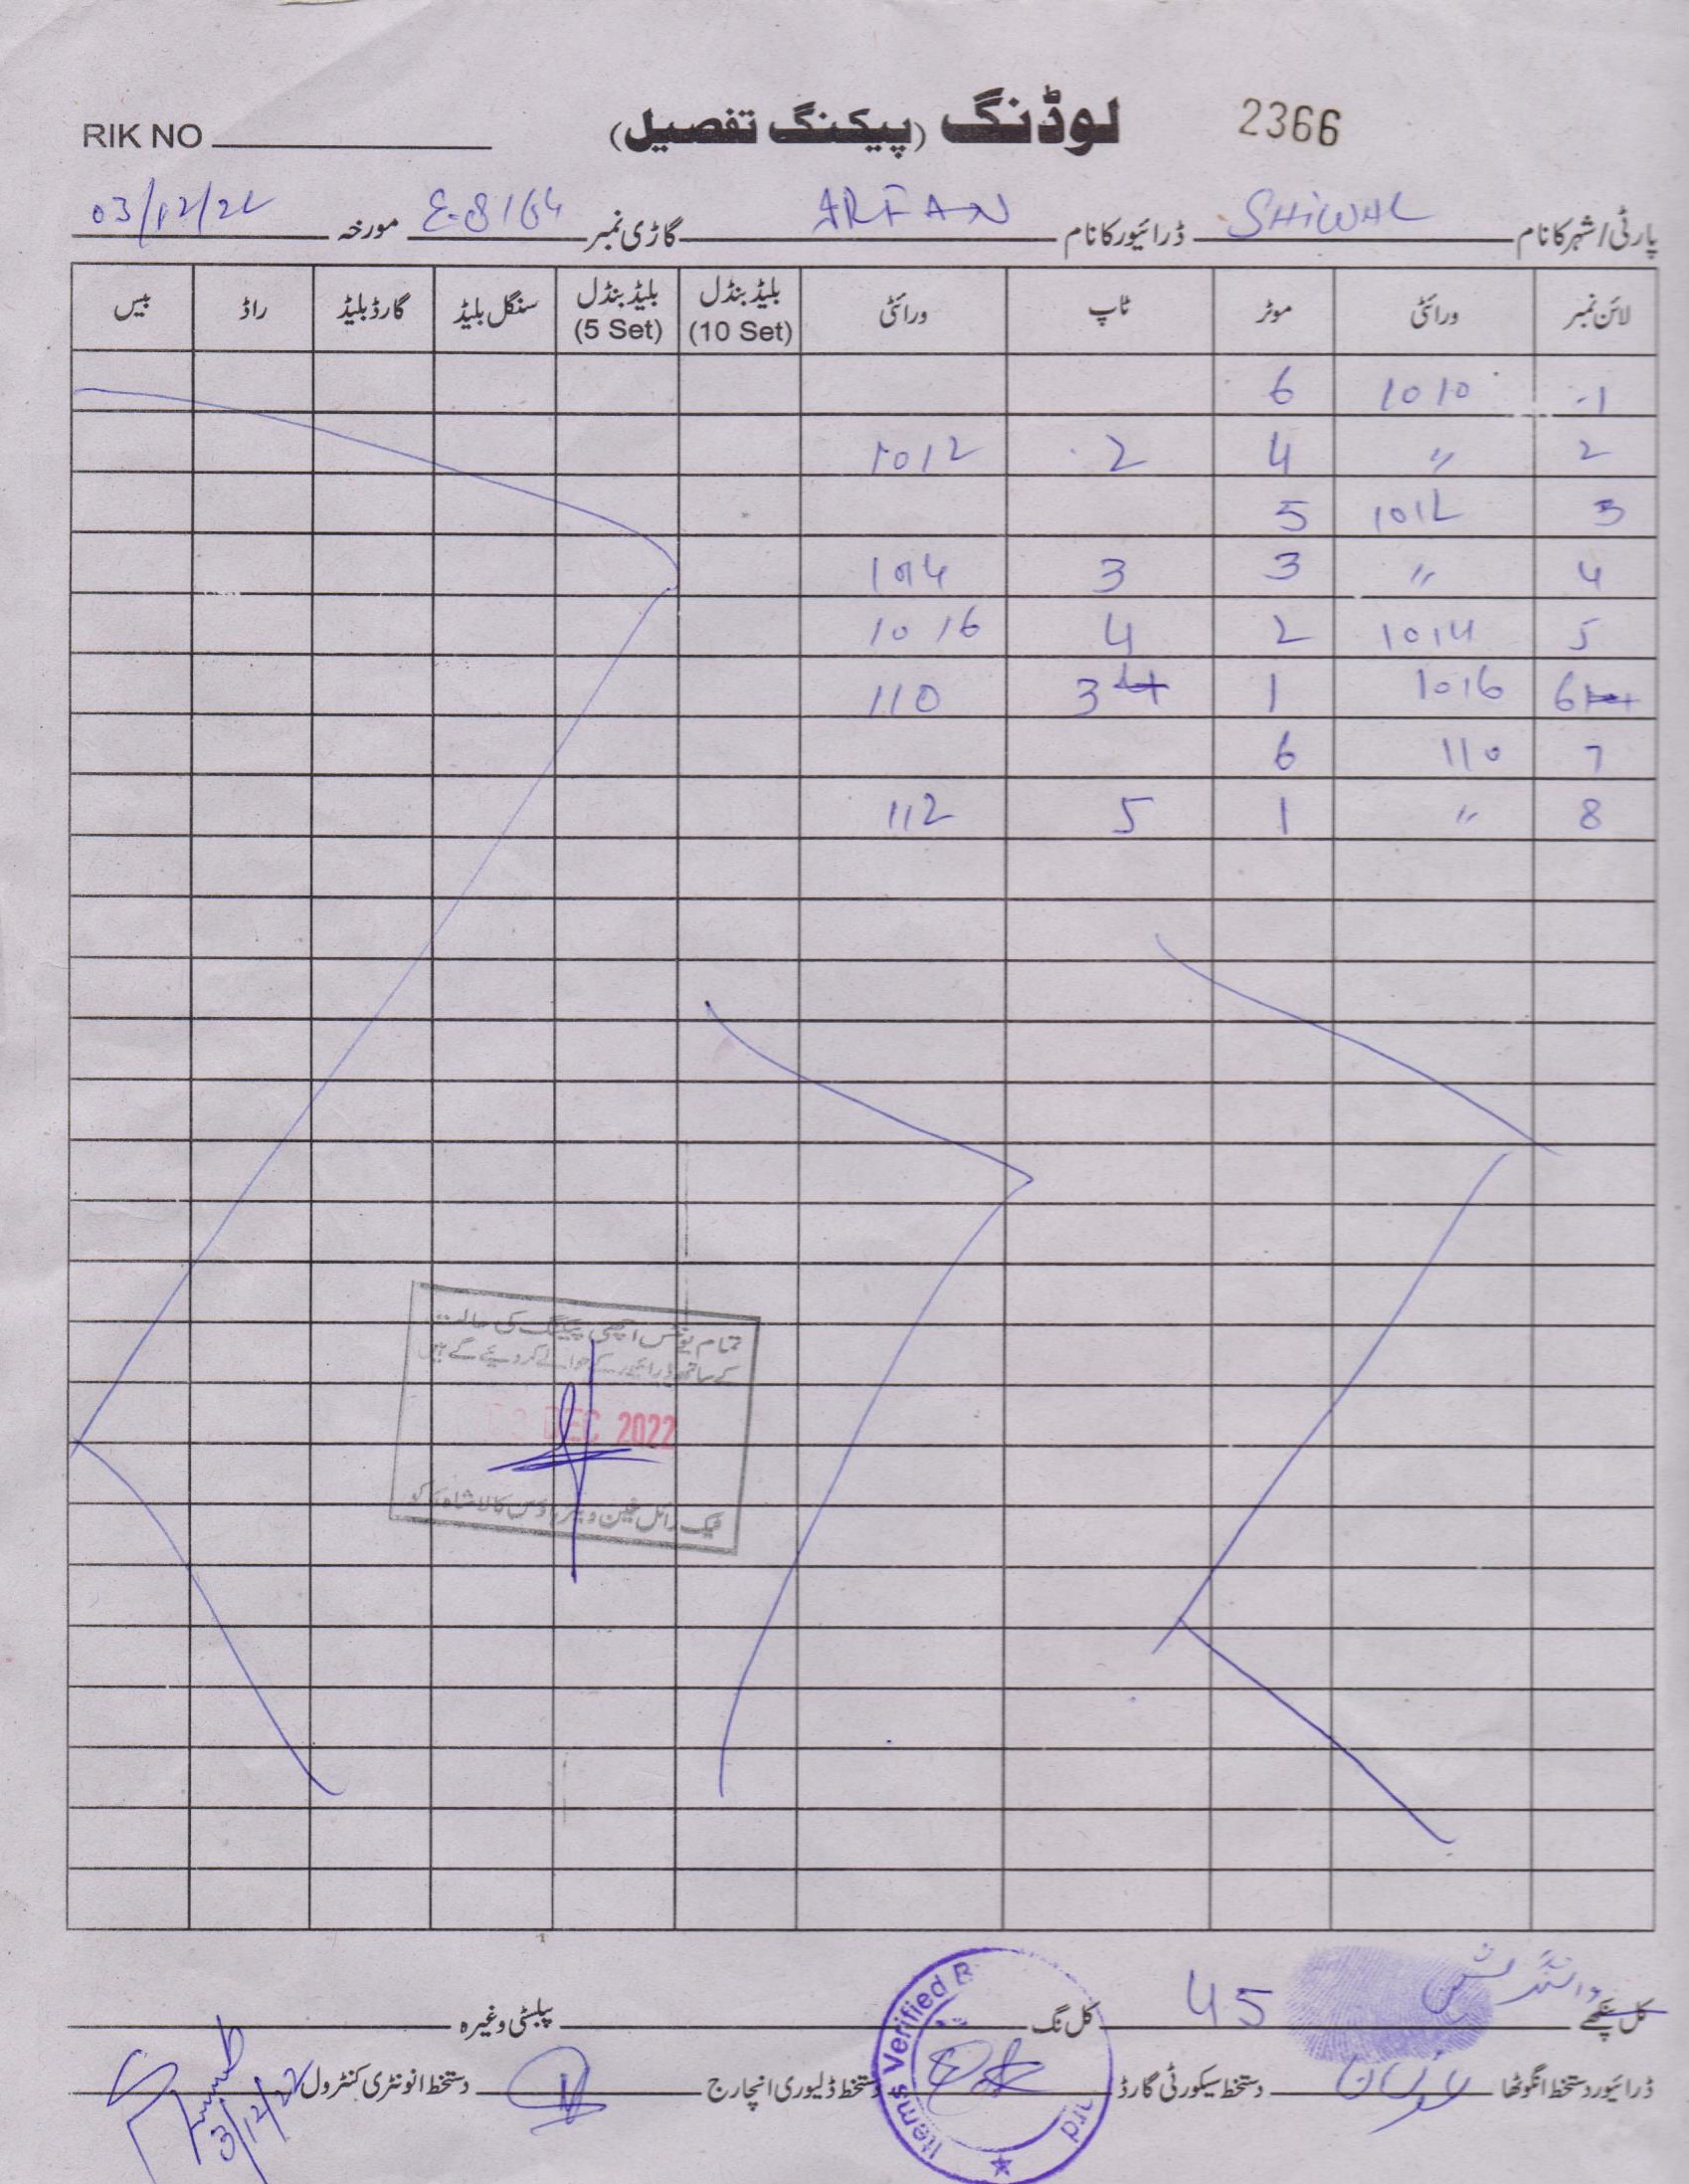 RIK NO لوڈنگ (پیکنگ تفصیل) 2366
پارٹی/شہر کا نام SHIWAL ڈرائیور کا نام ARFAN گاڑی نمبر E-8164 مورخہ 03/12/22
لائن نمبر ورائٹی موٹر ٹاپ ورائٹی بلیڈ بنڈل (10 Set) بلیڈ بنڈل (5 Set) سنگل بلیڈ گارڈ بلیڈ راڈ بیس
1 1010 6
2 〃 4 2 1012
3 1012 5
4 〃 3 3 1014
5 1014 2 4 1016
6 1016 1 3 110
7 110 6
8 〃 1 5 112
تمام یونٹس اچھی پیکنگ کی حالت
کے ساتھ ڈرائیور کے حوالے کر دیئے گئے ہیں
DEC 2022
کل پنکھے 45 کل نگ پبلسٹی وغیرہ
ڈرائیور دستخط انگوٹھا دستخط سیکورٹی گارڈ دستخط ڈلیوری انچارج دستخط انونٹری کنٹرول
3/12/22
Items Verified